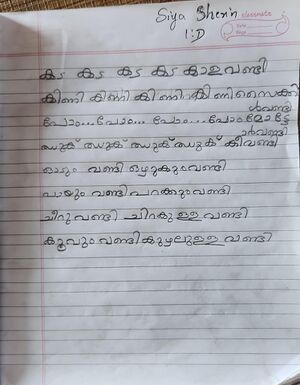 Siya Sherin
classmate
Date
Page
1:D
കട കട കട കട കാളവണ്ടി
കിണി കിണി കിണി കിണി സൈക്കി
ൾവണ്ടി
പോം...പോം... പോം...പോം മോട്ടോ
ർവണ്ടി
ഝുക് ഝുക് ഝുക് ഝുക് തീവണ്ടി
ഓടും വണ്ടി ഒഴുകും വണ്ടി
പായും വണ്ടി പറക്കും വണ്ടി
ചീറു വണ്ടി ചിറകുള്ള വണ്ടി
കൂവും വണ്ടി കുഴലുള്ള വണ്ടി